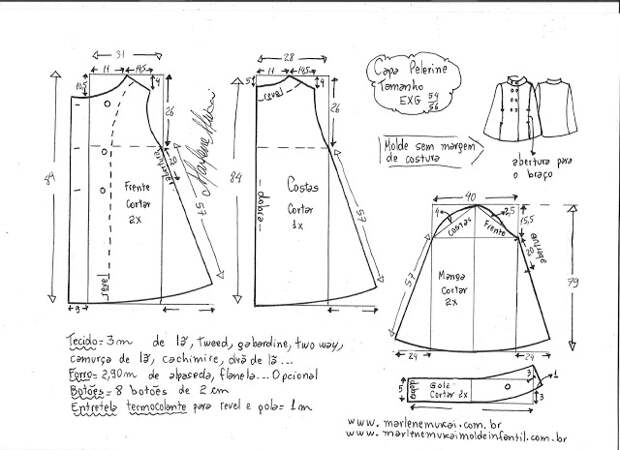 31
11
14,5
10,5
4
26
84
abertura
20
57
Frente
Cortar
2x
revel
9
Marlene Mukai
28
11
14,5
5
4
revel
26
84
dobra
Costas
Cortar
1x
57
Capa Pelerine
Tamanho
EXG 54
56
Molde sem margem
de costura
abertura para
o braço
40
4
2,5
15,5
costas
Frente
abertura
20
57
79
Manga
Cortar
2x
24
24
dobra
5
Gola
Cortar 2x
3
1
3
Tecido = 3m de lã, tweed, gabardine, two way,
camurça de lã, cachimire, drã de lã...
Forro = 2,90m de alpaseda, flanela... Opcional
Botões = 8 botões de 2 cm
Entretela termocolante para revel e gola = 1m
www.marlenemukai.com.br
www.marlenemukaimoldeinfantil.com.br